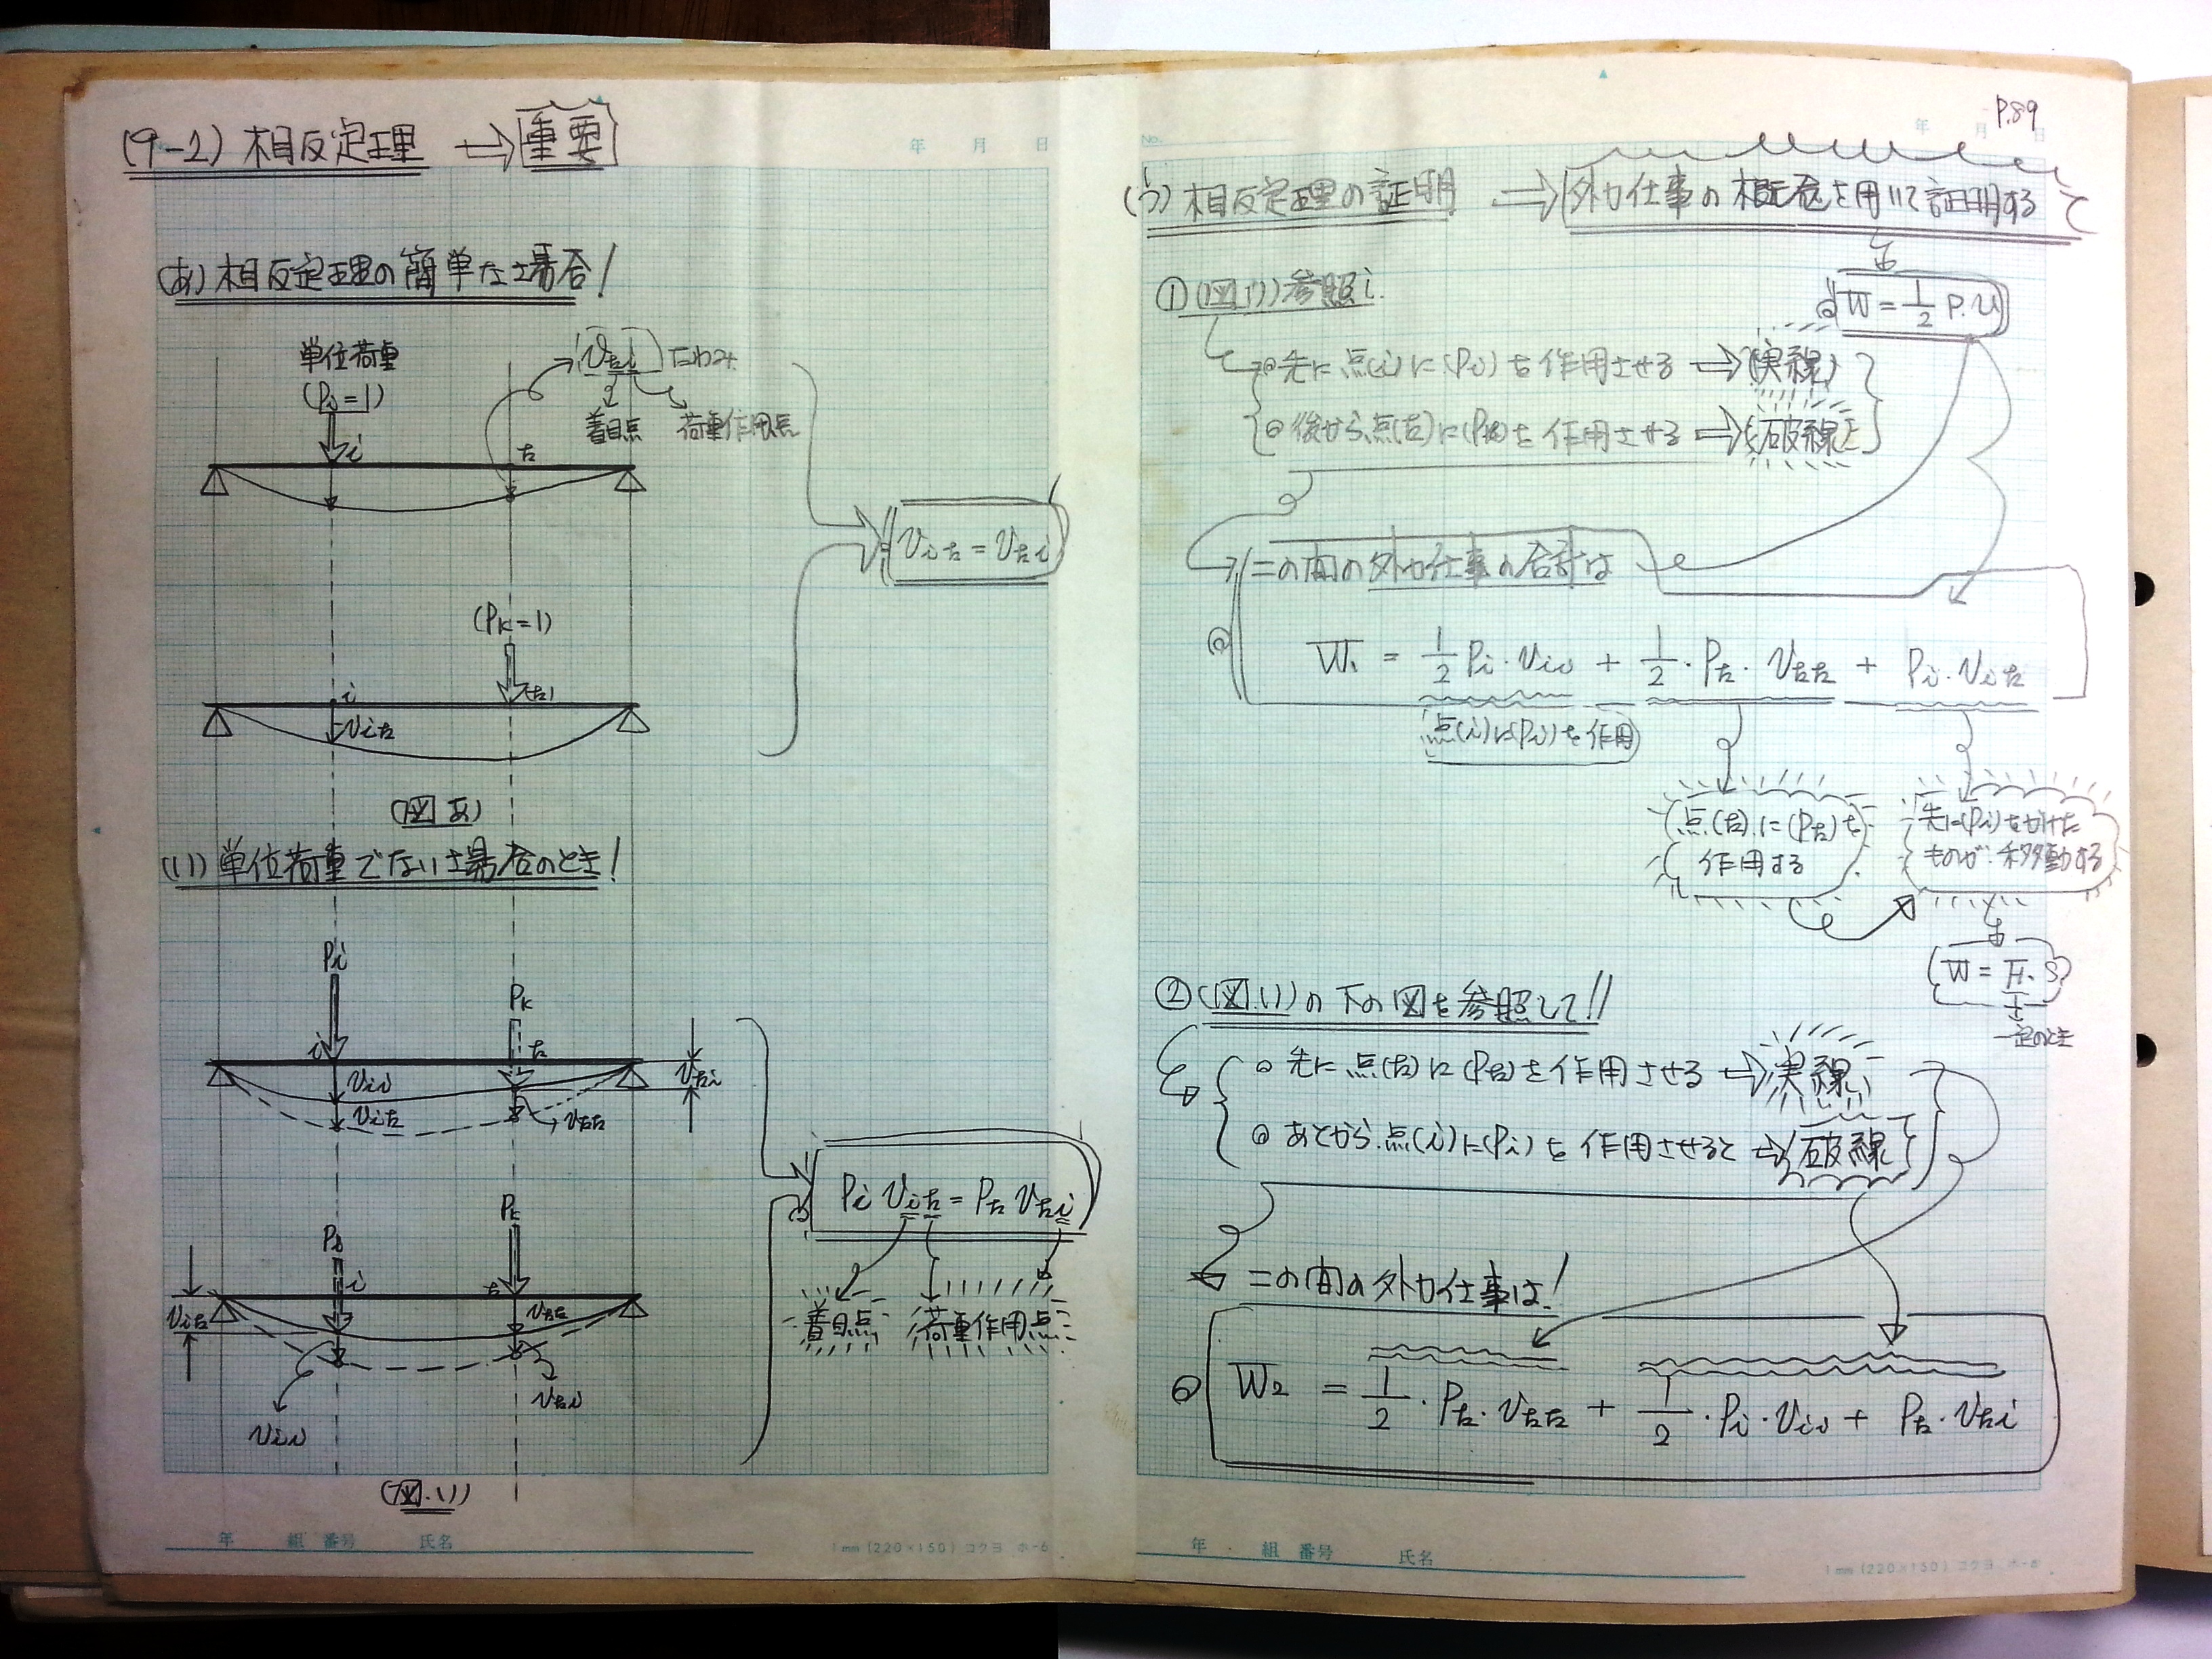 (9-2) 相反定理 ⇒ 重要
(あ) 相反定理の簡単な場合!
単位荷重
(Pi=1)
i
k
vki たわみ
着目点 荷重作用点
vik = vki
(Pk=1)
i
(k)
vik
(図 あ)
(い) 単位荷重でない場合のとき!
Pi
Pk
i
k
vii
vik
vkk
vki
Pi vik = Pk vki
着目点 荷重作用点
Pi
Pk
i
k
vik
vkk
vii
vki
(図.い)
年 組 番号 氏名
1mm(220×150) コクヨ ホ-6
年 月 日
No.
年 月 日
P.89
(う) 相反定理の証明 ⇒ 外力仕事の概念を用いて証明する
W = 1/2 P.u
① (図い) 参照
先に点(i)に(Pi)を作用させる ⇒ (実線)
後から点(k)に(Pk)を作用させる ⇒ 破線
この間の外力仕事の合計は
W1 = 1/2 Pi・vii + 1/2・Pk・vkk + Pi・vik
点(i)に(Pi)を作用
点(k)に(Pk)を
作用する
先に(Pi)をかけた
ものが移動する
W = F.S
一定のとき
② (図.い)の下の図を参照して!!
先に点(k)に(Pk)を作用させる ⇒ 実線
あとから点(i)に(Pi)を作用させると ⇒ 破線
この間の外力仕事は!
W2 = 1/2・Pk・vkk + 1/2・Pi・vii + Pk・vki
年 組 番号 氏名
1mm(220×150) コクヨ ホ-6